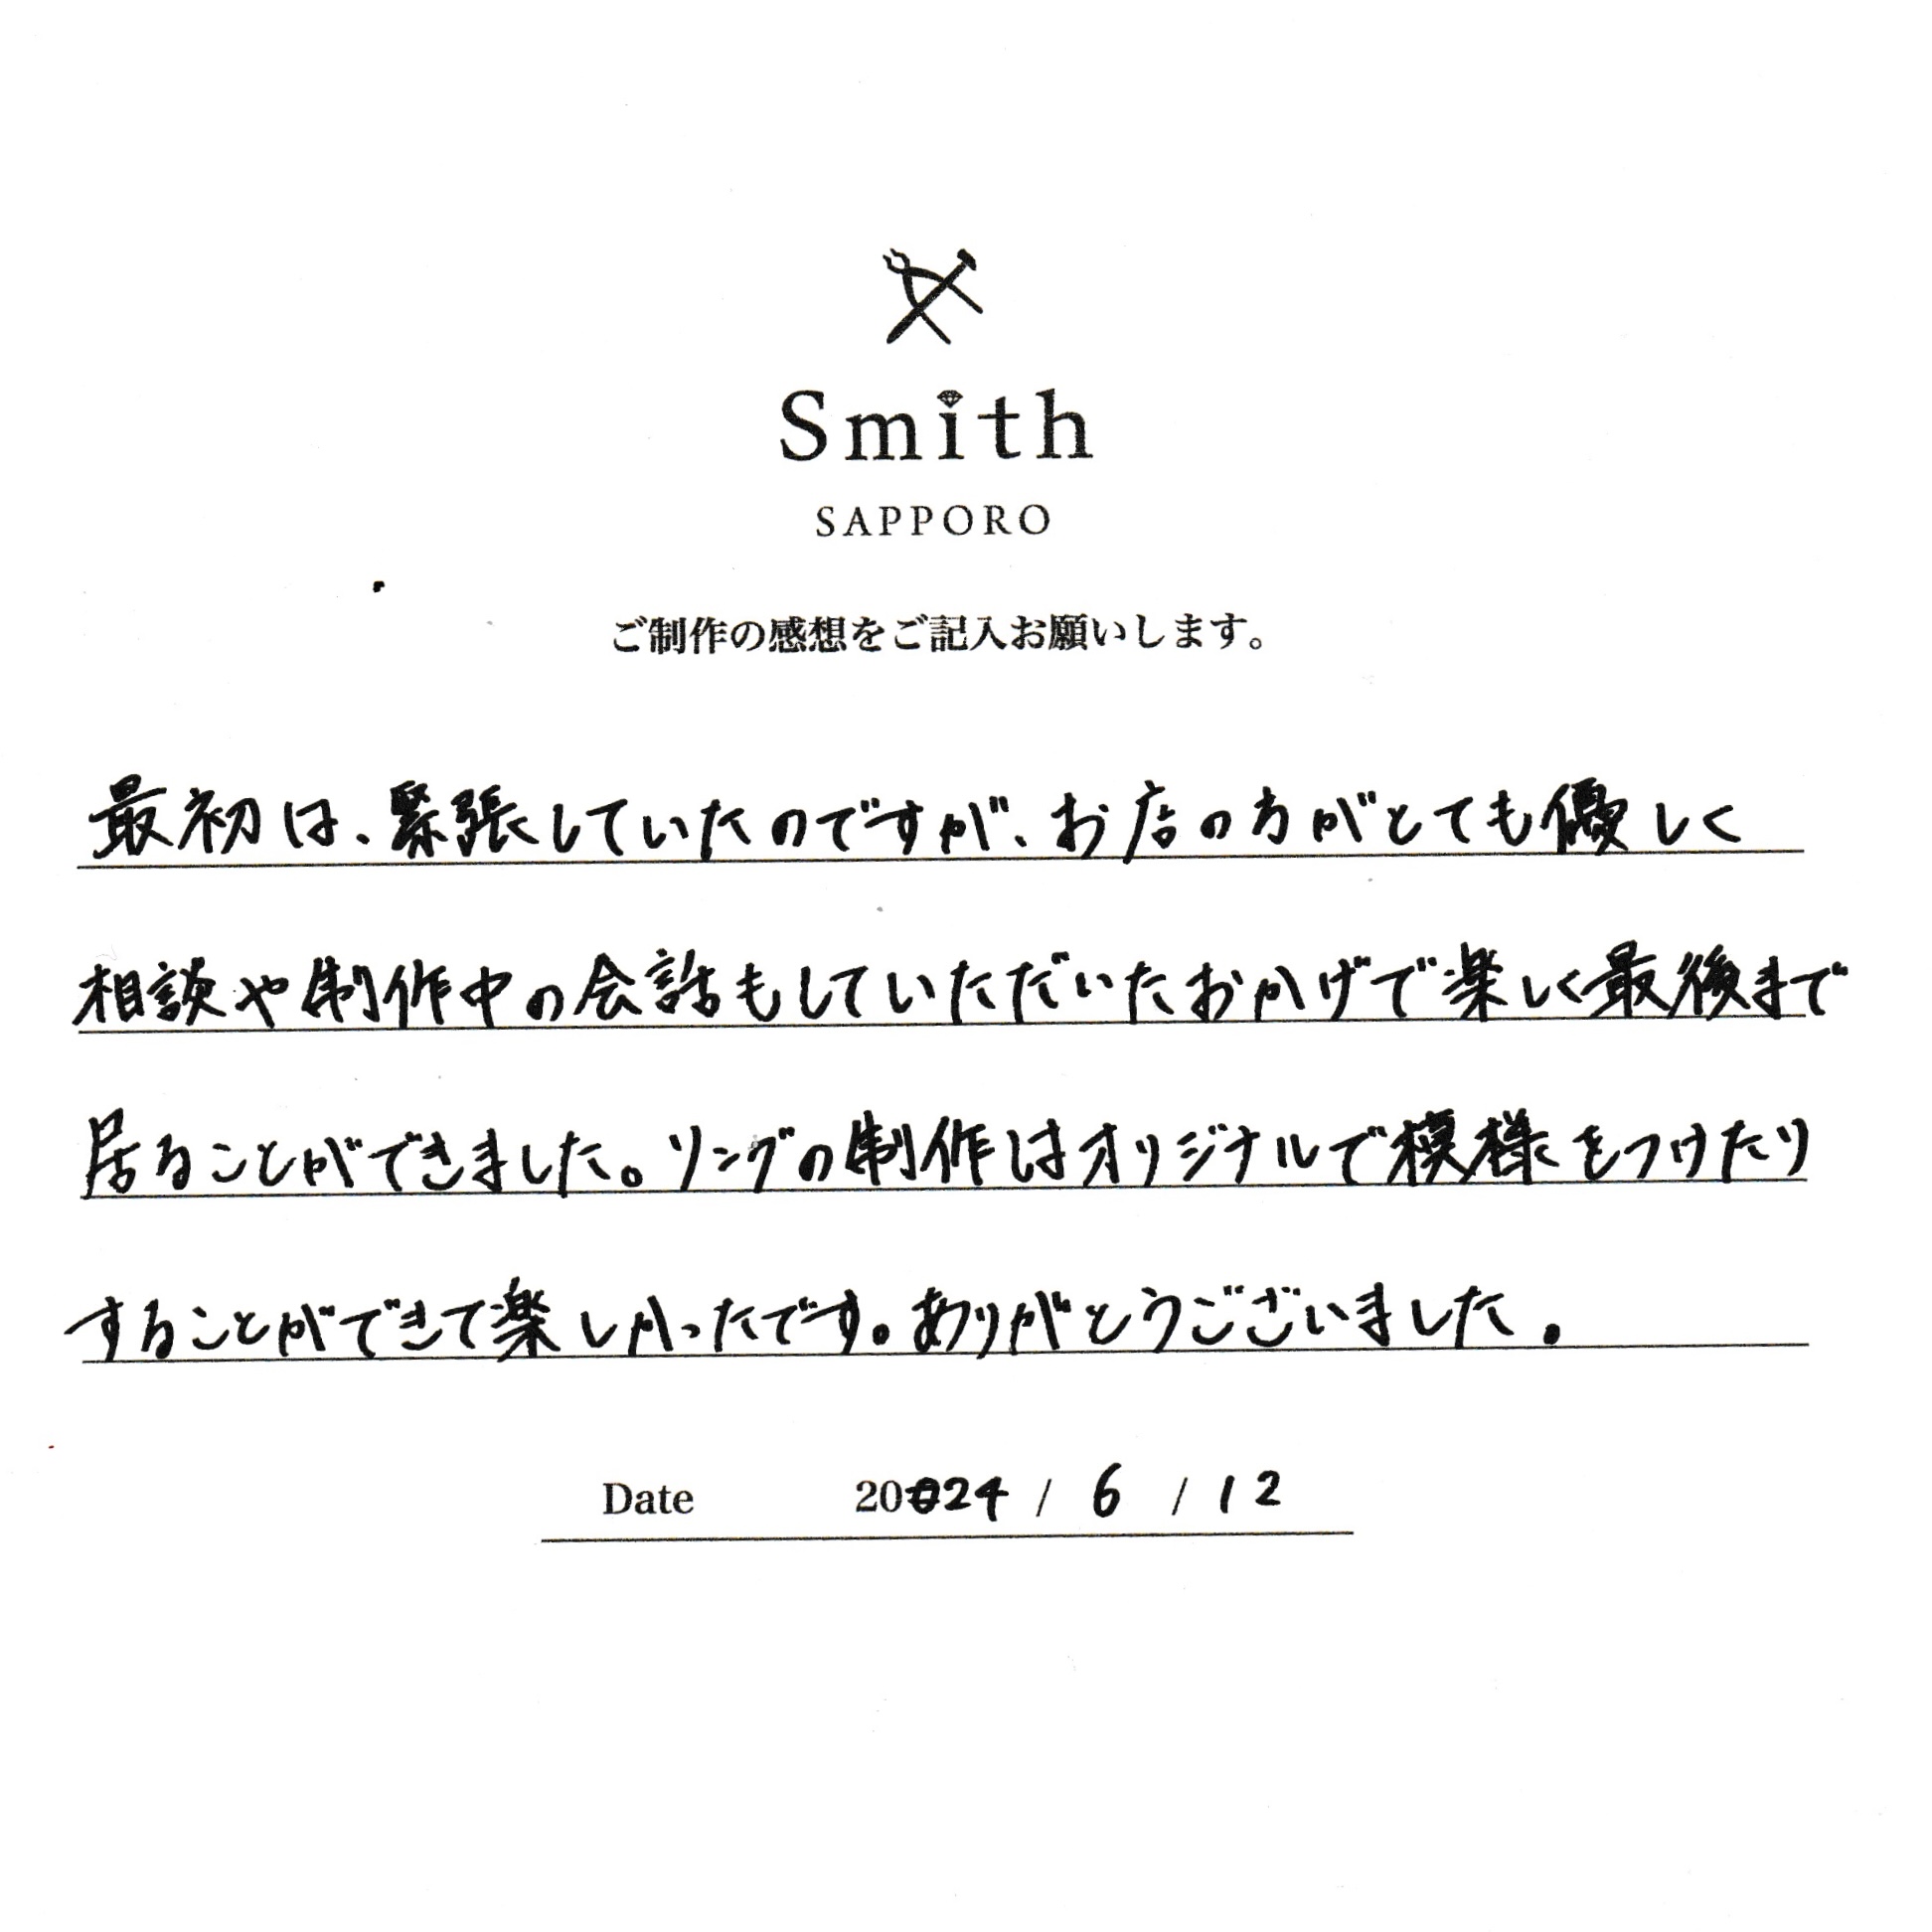 Smith
SAPPORO
ご制作の感想をご記入お願いします。
最初は、緊張していたのですが、お店の方がとても優しく
相談や制作中の会話もしていただいたおかげで楽しく最後まで
居ることができました。リングの制作はオリジナルで模様をつけたり
することができて楽しかったです。ありがとうございました。
Date 2024 / 6 / 12